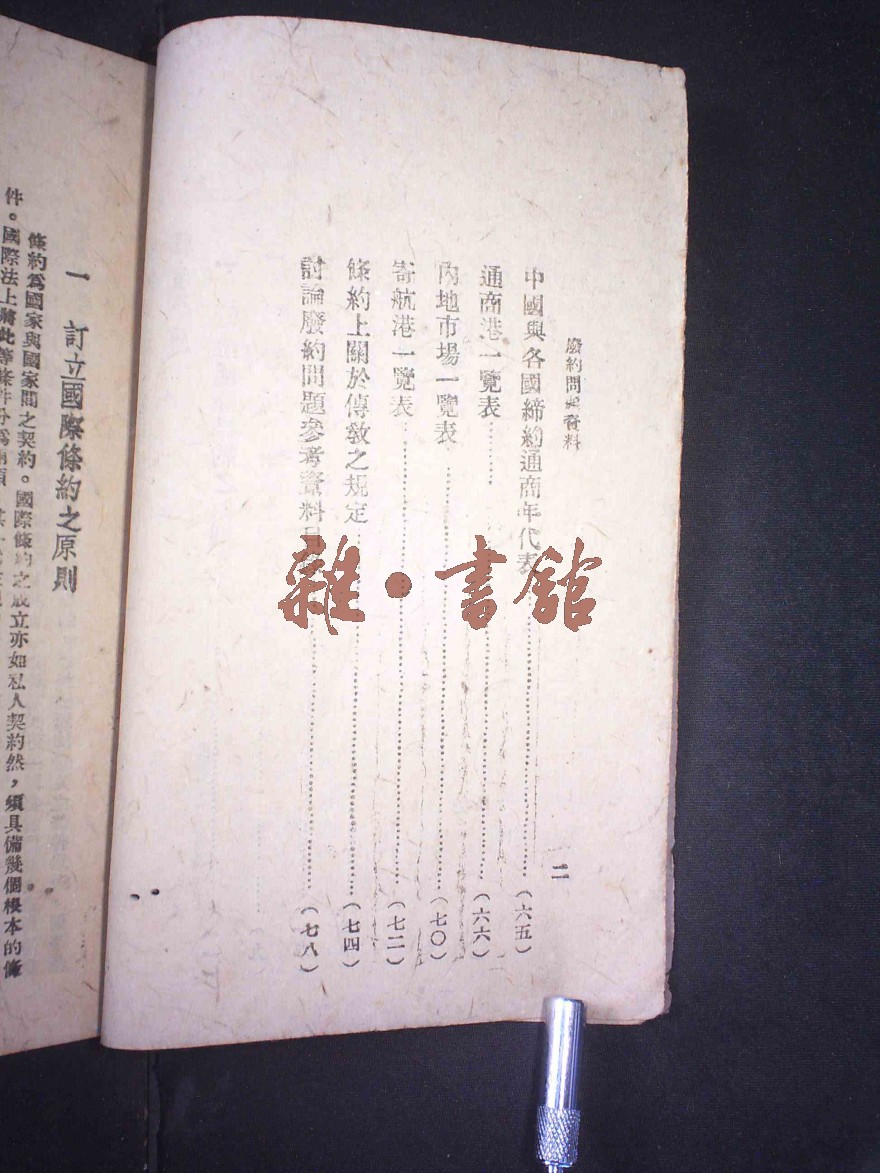 廢約問題資料
二
中國與各國締約通商年代表……(六五)
通商港一覽表……(六六)
內地市場一覽表……(七〇)
寄航港一覽表……(七二)
條約上關於傳教之規定……(七四)
討論廢約問題參考資料目錄……(七八)
雜·書館
一 訂立國際條約之原則
條約爲國家與國家間之契約。國際條約之成立亦如私人契約然，須具備幾個根本的條
件。國際法上將此等條件分爲兩項